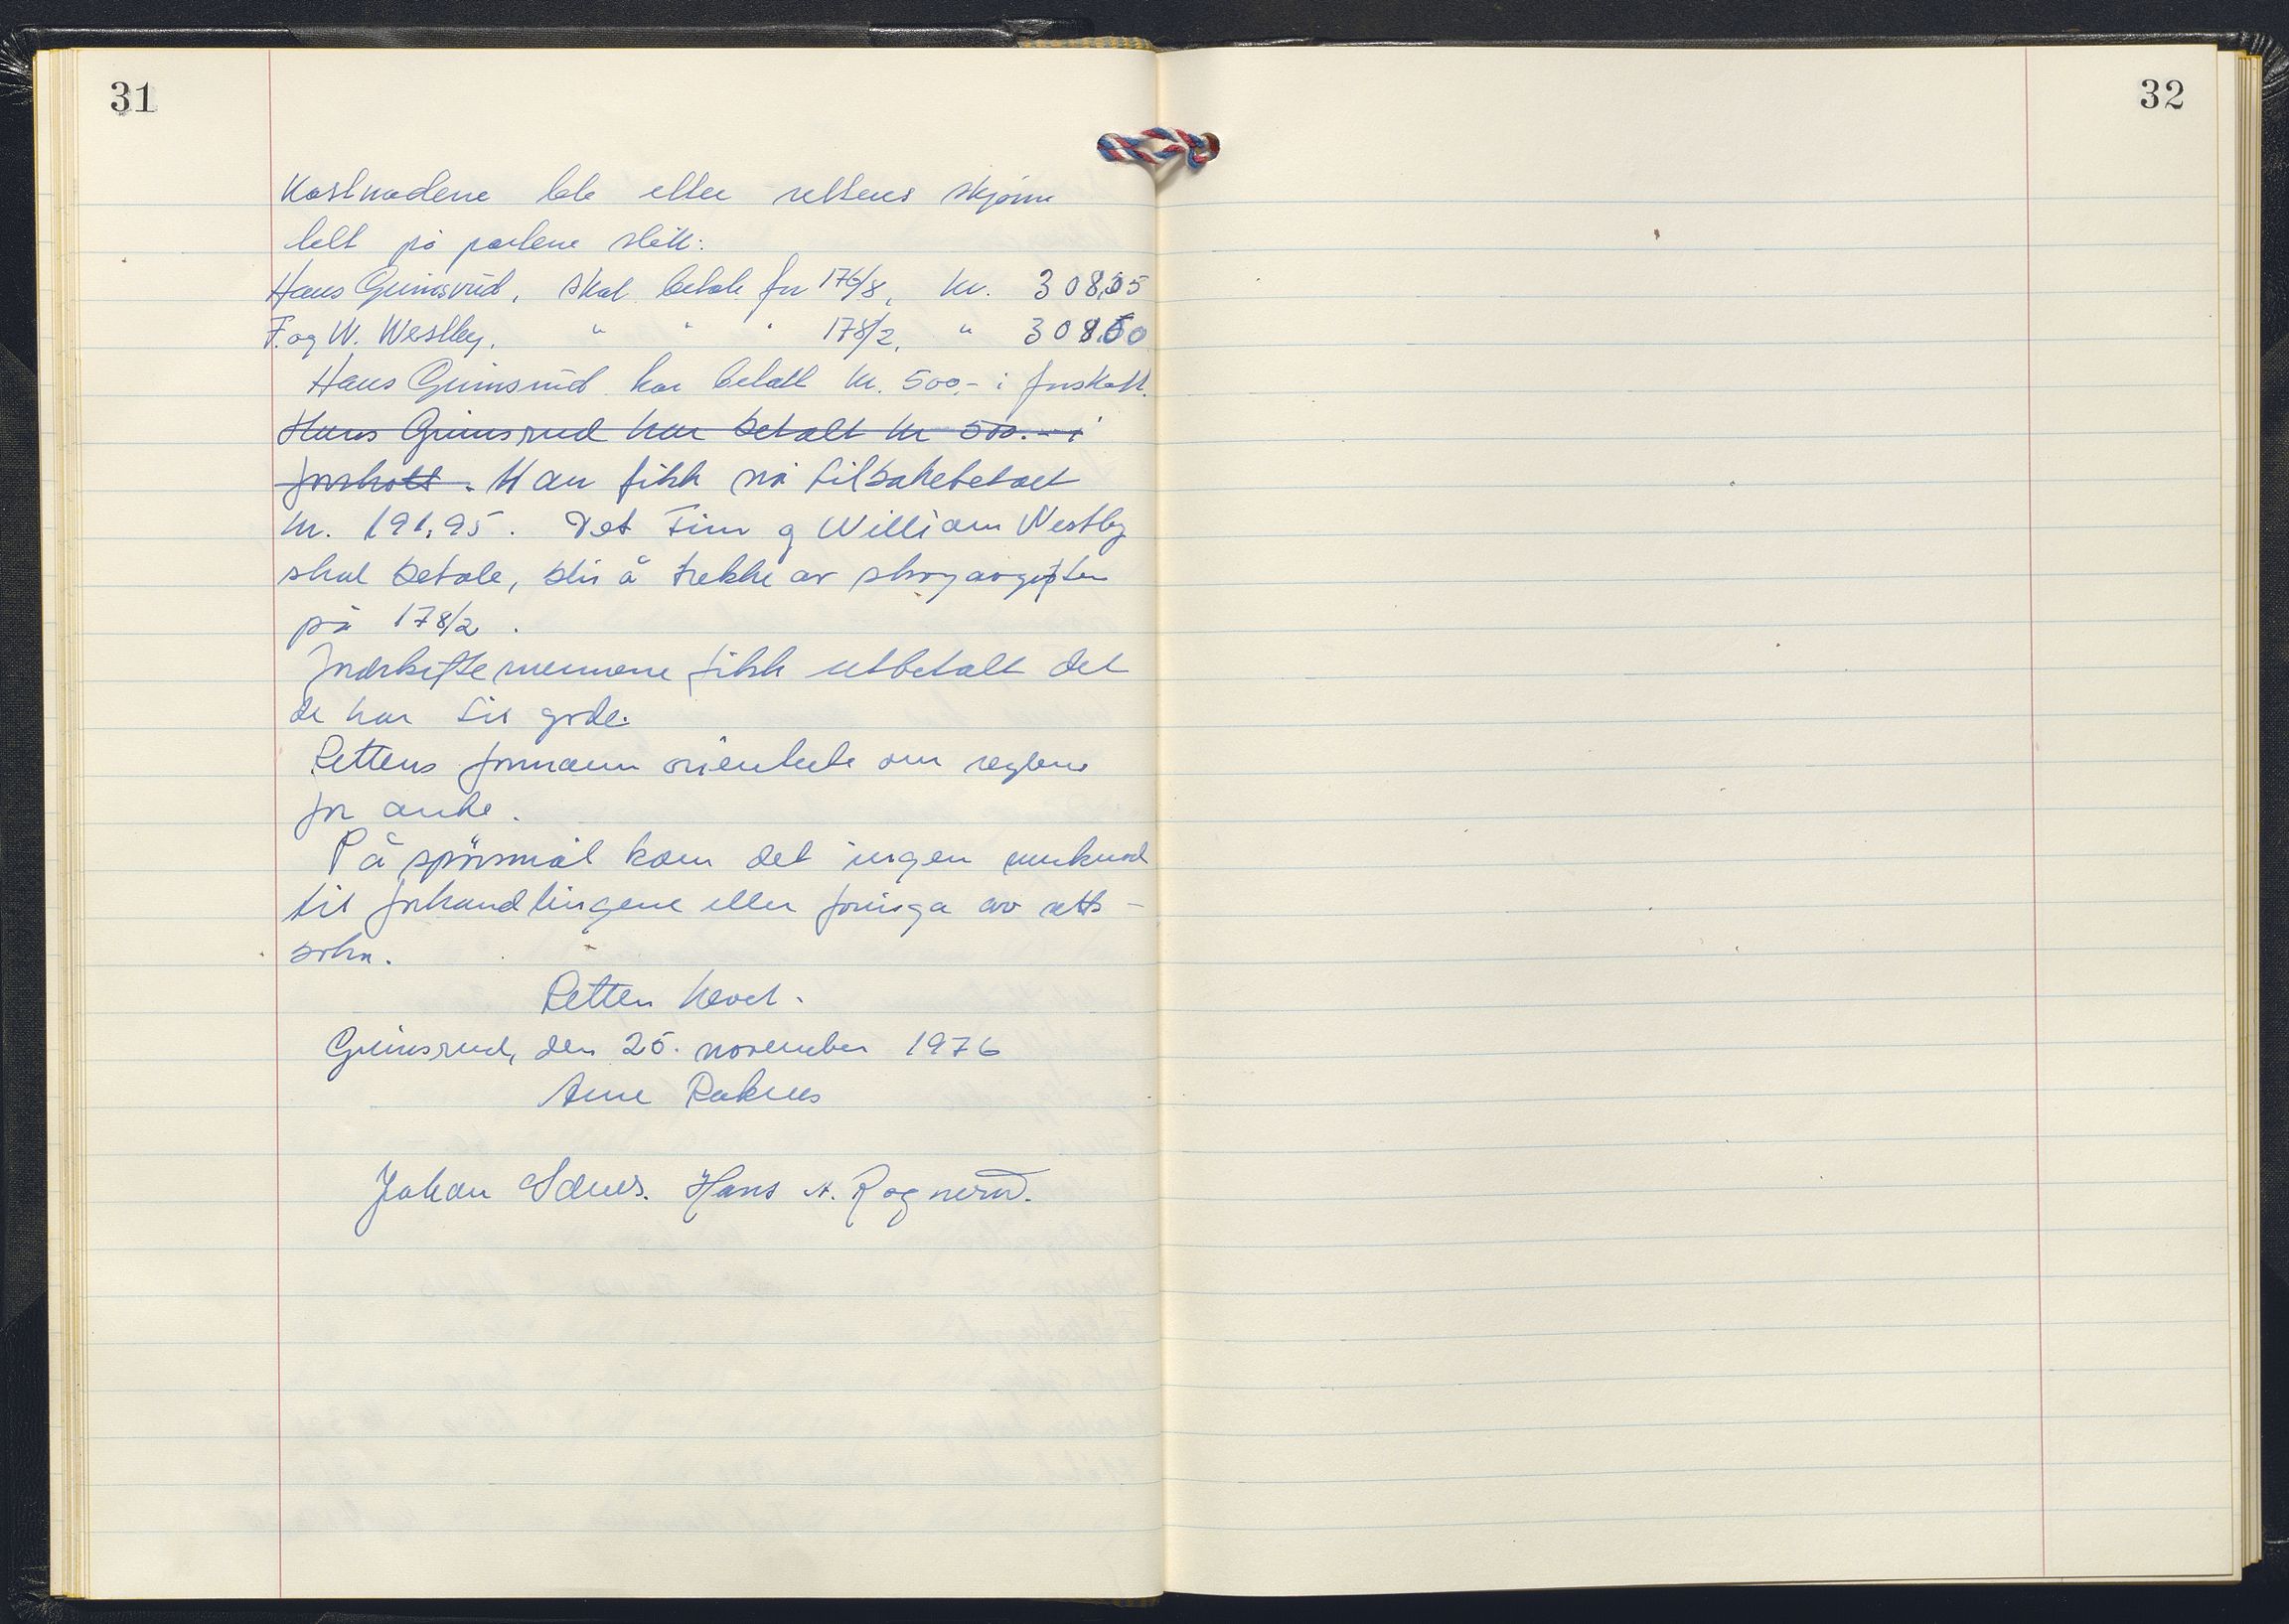 31
32
Kostnadene ble etter rettens skjønn
lelt på partene slik:
Hans Grimsrud, skal betale for 176/8, kr. 308,05
F. og W. Westby, " " " 178/2, " 308,00
Hans Grimsrud har betalt kr. 500,- i forskott.
Hans Grimsrud har betalt kr 500.- i
forskott. Han fikk nå tilbakebetalt
kr. 191,95. Det Finn og William Westby
skal betale, blir å trekke av skogavgiften
på 178/2.
Jordskiftemennene fikk utbetalt det
de har til gode.
Rettens formann orienterte om reglene
for anke.
På spørsmål kom det ingen merknad
til forhandlingene eller føringa av retts-
boka.
Retten hevet.
Grimsrud, den 25. november 1976
Arne Raknes
Johan Hans A. Rognerud.